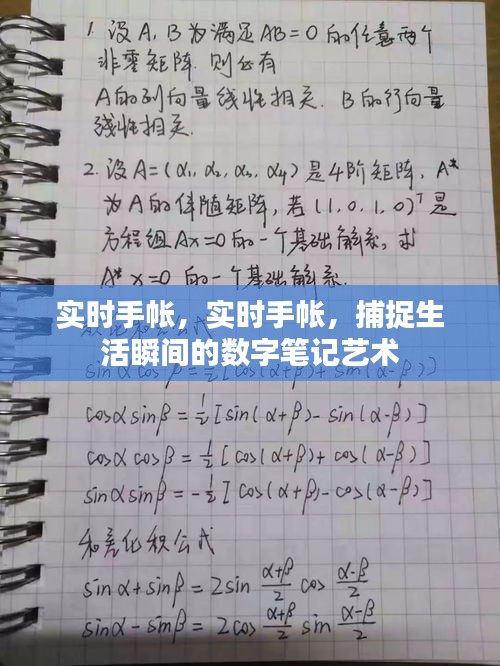 1. 设A,B为满足AB=0的任意两个
非零矩阵.则必有
A的列向量线性相关.B的行向量
线性相关.
2.设A=(α₁,α₂,α₃,α₄)是4阶矩阵,A*
为A的伴随矩阵,若(1,0,1,0)ᵀ是
方程组Ax=0的一个基础解系,求
A*x=0的一个基础解系.
实时手帐，实时手帐，捕捉生
活瞬间的数字笔记艺术
cosαsinβ=½[sin(α+β)-sin(α-β)]
cosαcosβ=½[cos(α+β)+cos(α-β)]
sinαsinβ=-½[cos(α+β)-cos(α-β)]
和差化积公式
sinα+sinβ=2sin (α+β)/2 cos (α-β)/2
sinα-sinβ=2cos (α+β)/2 sin (α-β)/2